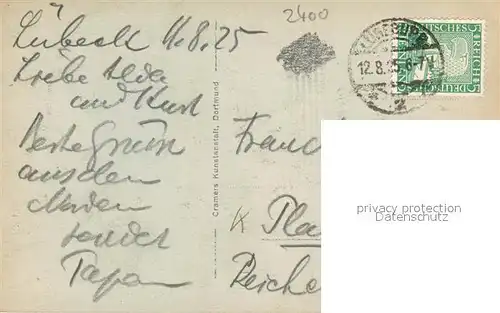 2400
Lübeck 11.8.25
Liebe Alda
und Kurt
Beste Grüsse
aus dem
Norden
sendet
Papa
Cramers Kunstanstalt, Dortmund
12.8.25.6-7V.
DEUTSCHES REICH
Pla
Reiche
privacy protection
Datenschutz